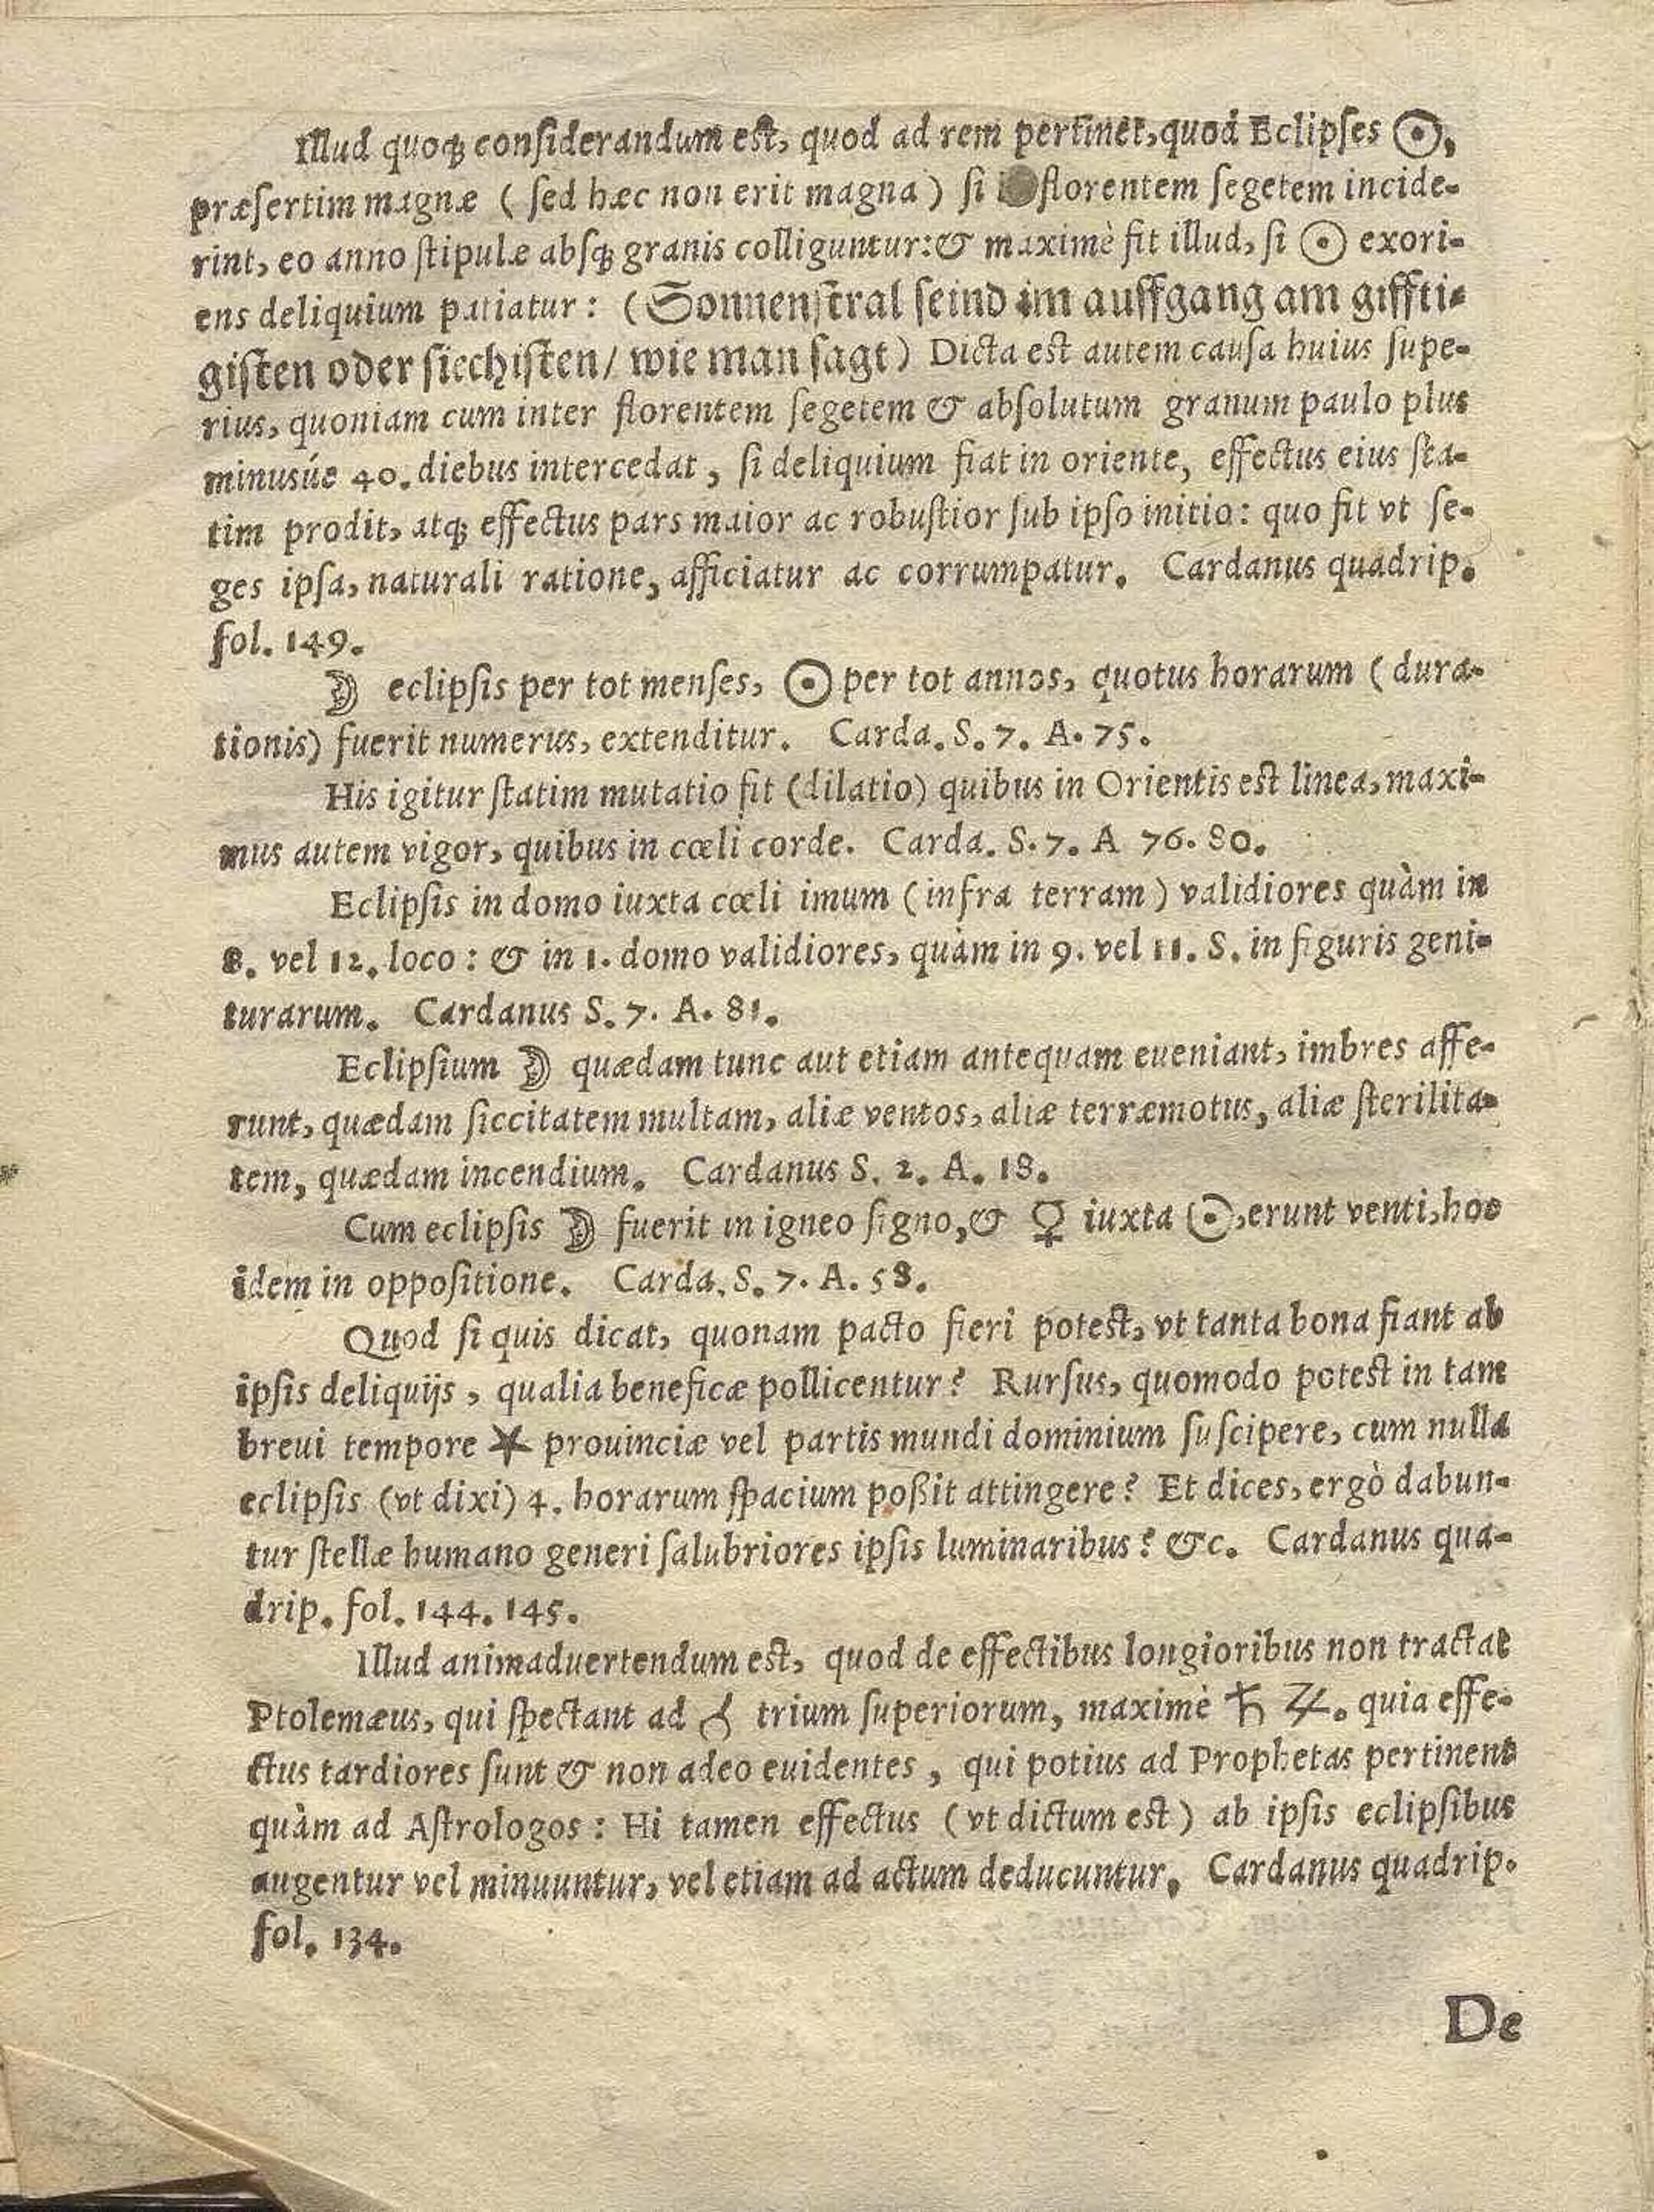 Illud quoq́; conſiderandum eſt, quod ad rem pertinet, quod Eclipſes ☉,
præſertim magnæ (ſed hæc non erit magna) ſi florentem ſegetem incide-
rint, eo anno ſtipulæ abſq; granis colliguntur: & maximè fit illud, ſi ☉ exori-
ens deliquium patiatur: (Sonnenſtral ſeind im auffgang am giffti-
giſten oder ſiechiſten/ wie man ſagt) Dicta est autem cauſa huius ſupe-
rius, quoniam cum inter florentem ſegetem & abſolutum granum paulo plus
minusúe 40. diebus intercedat, ſi deliquium fiat in oriente, effectus eius ſta-
tim prodit, atq; effectus pars maior ac robuſtior ſub ipſo initio: quo fit vt ſe-
ges ipſa, naturali ratione, afficiatur ac corrumpatur. Cardanus quadrip.
fol. 149.
☽ eclipſis per tot menſes, ☉ per tot annos, quotus horarum (dura-
tionis) fuerit numerus, extenditur. Carda. S. 7. A. 75.
His igitur ſtatim mutatio fit (dilatio) quibus in Orientis est linea, maxi-
mus autem vigor, quibus in cœli corde. Carda. S. 7. A 76. 80.
Eclipſis in domo iuxta cœli imum (infra terram) validiores quàm in
8. vel 12. loco: & in 1. domo validiores, quàm in 9. vel 11. S. in figuris geni-
turarum. Cardanus S. 7. A. 81.
Eclipſium ☽ quædam tunc aut etiam antequam eueniant, imbres affe-
runt, quædam ſiccitatem multam, aliæ ventos, aliæ terræmotus, aliæ ſterilita-
tem, quædam incendium. Cardanus S. 2. A. 18.
Cum eclipſis ☽ fuerit in igneo ſigno, & ♀ iuxta ☉, erunt venti, hoc
idem in oppoſitione. Carda. S. 7. A. 58.
Quod ſi quis dicat, quonam pacto fieri potest, vt tanta bona fiant ab
ipſis deliquijs, qualia beneficæ pollicentur? Rurſus, quomodo potest in tam
breui tempore ★ prouinciæ vel partis mundi dominium ſuſcipere, cum nulla
eclipſis (vt dixi) 4. horarum ſpacium poßit attingere? Et dices, ergò dabun-
tur ſtellæ humano generi ſalubriores ipſis luminaribus? &c. Cardanus qua-
drip. fol. 144. 145.
Illud animaduertendum est, quod de effectibus longioribus non tractat
Ptolemæus, qui ſpectant ad ☌ trium ſuperiorum, maximè ♄ ♃. quia effe-
ctus tardiores ſunt & non adeo euidentes, qui potius ad Prophetas pertinent
quàm ad Aſtrologos: Hi tamen effectus (vt dictum est) ab ipſis eclipſibus
augentur vel minuuntur, vel etiam ad actum deducuntur. Cardanus quadrip.
fol. 134.
De